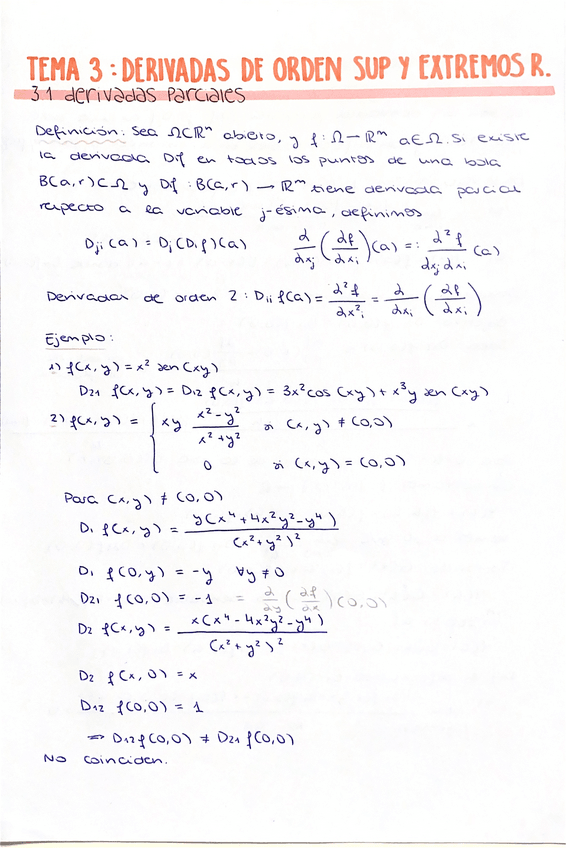 TEMA 3: DERIVADAS DE ORDEN SUP Y EXTREMOS R.
3.1 derivadas parciales
Definición: Sea Ω⊂ℝⁿ abierto, y f: Ω → ℝᵐ a∈Ω. Si existe
la derivada Dᵢf en todos los puntos de una bola
B(a,r)⊂Ω y Dᵢf : B(a,r) → ℝᵐ tiene derivada parcial
respecto a la variable j-ésima, definimos
Dⱼᵢ(a) = Dⱼ(Dᵢf)(a) ∂/∂xⱼ (∂f/∂xᵢ)(a) =: ∂²f/∂xⱼ∂xᵢ (a)
Derivadas de orden 2: Dᵢᵢ f(a) = ∂²f/∂x²ᵢ = ∂/∂xᵢ (∂f/∂xᵢ)
Ejemplo:
1) f(x,y) = x² sen(xy)
D₂₁ f(x,y) = D₁₂ f(x,y) = 3x²cos(xy) + x³y sen(xy)
2) f(x,y) = { xy (x²-y²)/(x²+y²) si (x,y) ≠ (0,0)
0 si (x,y) = (0,0)
Para (x,y) ≠ (0,0)
D₁ f(x,y) = y(x⁴+4x²y²-y⁴)/(x²+y²)²
D₁ f(0,y) = -y ∀y≠0
D₂₁ f(0,0) = -1 = ∂/∂y (∂f/∂x)(0,0)
D₂ f(x,y) = x(x⁴-4x²y²-y⁴)/(x²+y²)²
D₂ f(x,0) = x
D₁₂ f(0,0) = 1
⇒ D₁₂f(0,0) ≠ D₂₁ f(0,0)
No coinciden.